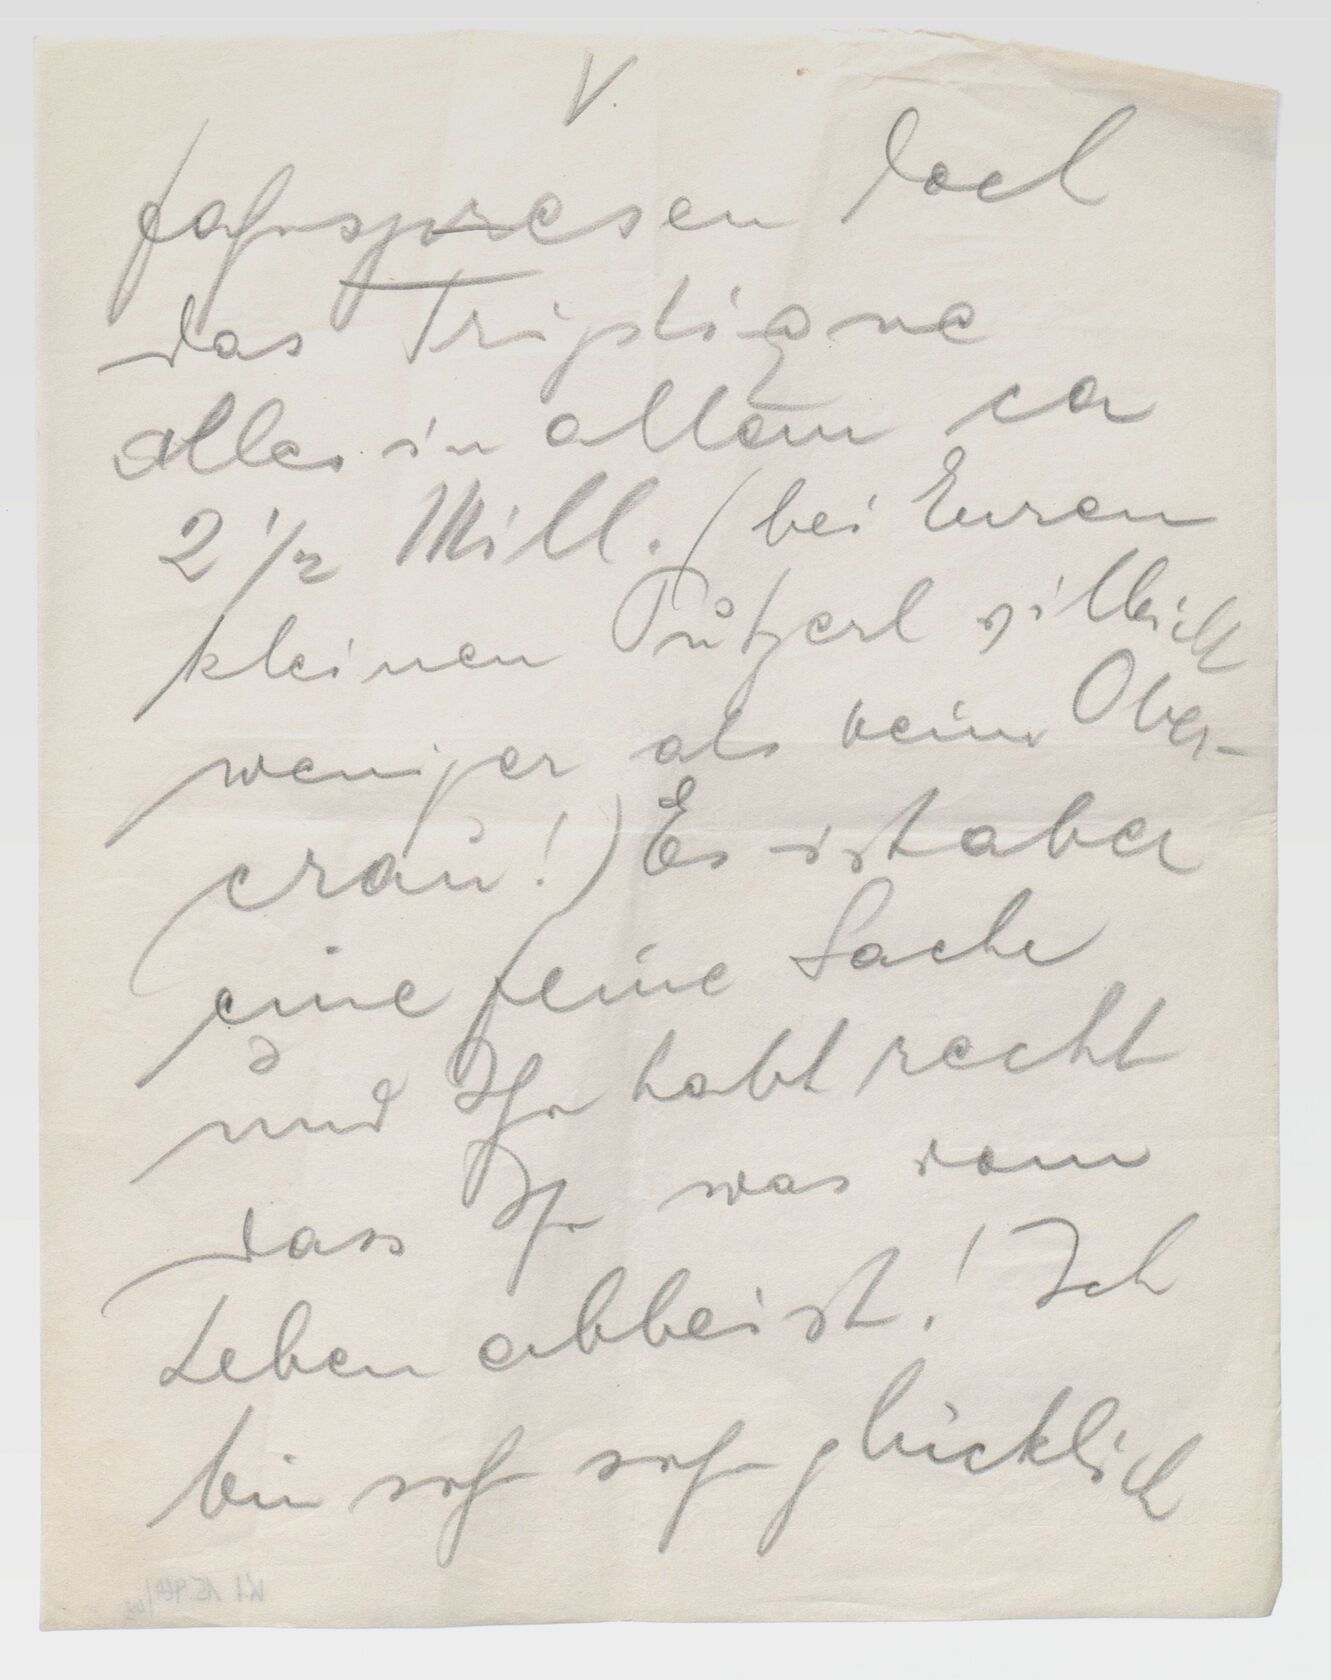 V.
Fahrspesen doch
das Triptique
Alles in allem ca
2 1/2 Mill. (bei Euren
kleinen Putzerl villeicht
weniger als beim Ober-
crau!) Es ist aber
eine feine Sache
und Ihr habt recht
dass Ihr was vom
Leben abbeist! Ich
bin sehr sehr glücklich